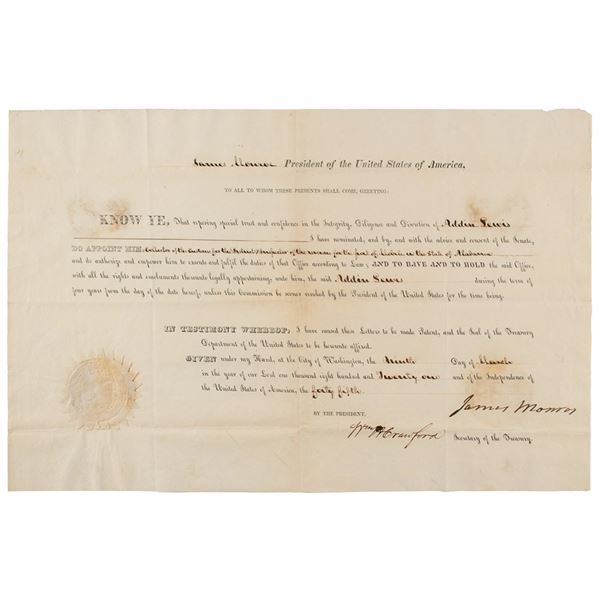 James Monroe President of the United States of America,
TO ALL TO WHOM THESE PRESENTS SHALL COME, GREETING:
KNOW YE, That reposing special trust and confidence in the Integrity, Diligence and Discretion of Addin Lewis
I have nominated, and by, and with the advice and consent of the Senate,
DO APPOINT HIM Collector of the Customs for the District & Inspector of the revenue for the port of Mobile in the State of Alabama
and do authorize and empower him to execute and fulfil the duties of that Office according to Law; AND TO HAVE AND TO HOLD the said Office,
with all the rights and emoluments thereunto legally appertaining, unto him, the said Addin Lewis during the term of
four years from the day of the date hereof, unless this Commission be sooner revoked by the President of the United States for the time being.
IN TESTIMONY WHEREOF, I have caused these Letters to be made Patent, and the Seal of the Treasury
Department of the United States to be hereunto affixed.
GIVEN under my Hand, at the City of Washington, the Ninth Day of March
in the year of our Lord one thousand eight hundred and Twenty one and of the Independence of
the United States of America, the forty fifth.
James Monroe
BY THE PRESIDENT,
Wm H Crawford Secretary of the Treasury.